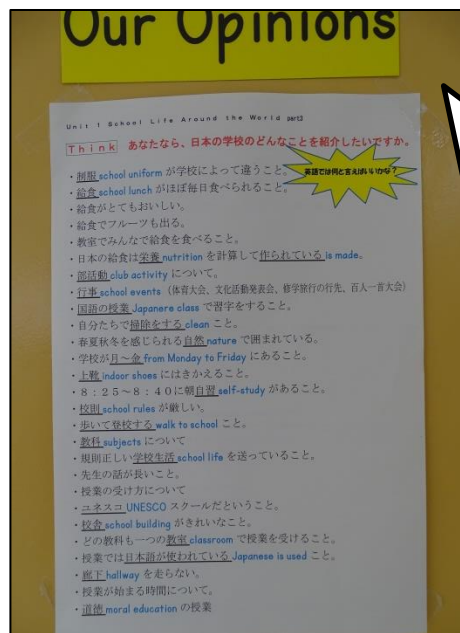 Our Opinions
Unit 1 School Life Around the World part3
Think あなたなら、日本の学校のどんなことを紹介したいですか。
英語では何と言えばいいかな？
・制服 school uniform が学校によって違うこと。
・給食 school lunch がほぼ毎日食べられること。
・給食がとてもおいしい。
・給食でフルーツも出る。
・教室でみんなで給食を食べること。
・日本の給食は栄養 nutrition を計算して作られている is made。
・部活動 club activity について。
・行事 school events （体育大会、文化活動発表会、修学旅行の行先、百人一首大会）
・国語の授業 Japanere class で習字をすること。
・自分たちで掃除をする clean こと。
・春夏秋冬を感じられる自然 nature で囲まれている。
・学校が月～金 from Monday to Friday にあること。
・上靴 indoor shoes にはきかえること。
・８：２５～８：４０に朝自習 self-study があること。
・校則 school rules が厳しい。
・歩いて登校する walk to school こと。
・教科 subjects について
・規則正しい学校生活 school life を送っていること。
・先生の話が長いこと。
・授業の受け方について
・ユネスコ UNESCO スクールだということ。
・校舎 school building がきれいなこと。
・どの教科も一つの教室 classroom で授業を受けること。
・授業では日本語が使われている Japanese is used こと。
・廊下 hallway を走らない。
・授業が始まる時間について。
・道徳 moral education の授業